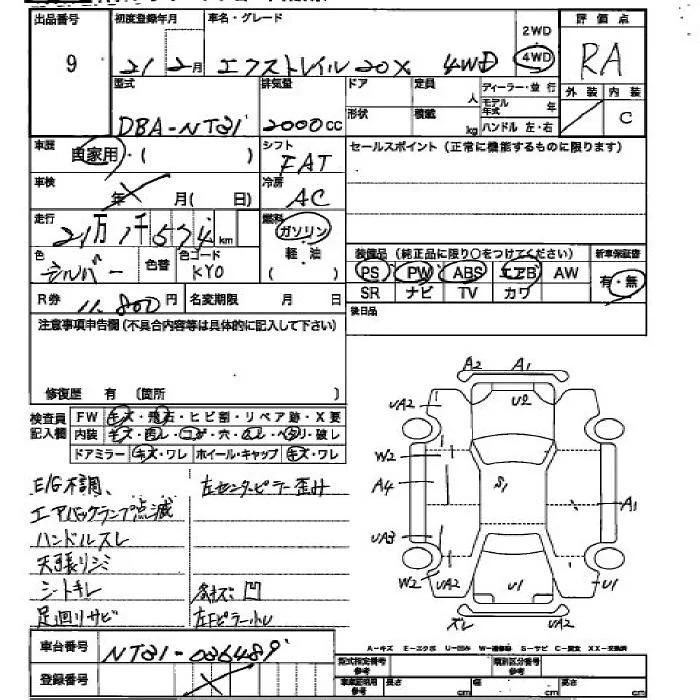 出品番号 初度登録年月 車名・グレード 2WD 評価点
9 21 2月 エクストレイル 20X 4WD 4WD RA
型式 排気量 ドア 定員 人 ディーラー・並行 外装 内装
形状 積載 kg モデル年式 年
DBA-NT31 2000cc ハンドル 左・右 C
車歴 自家用・( ) シフト FAT セールスポイント(正常に機能するものに限ります)
車検 年 月( 日) 冷房 AC
走行 21万1千574km 燃料 ガソリン
色 シルバー 色替 色コード KY0 軽油 ( )
装備品(純正品に限り○をつけてください) 新車保証書
PS PW ABS エアB AW 有・無
SR ナビ TV カワ
R券 11,800円 名変期限 月 日 後日品
注意事項申告欄(不具合内容等は具体的に記入して下さい)
修復歴 有 〔箇所 〕
検査員記入欄 FW キズ・飛石・ヒビ割・リペア跡・X要
内装 キズ・汚レ・コゲ・穴・スレ・ヘタリ・破レ
ドアミラー キズ・ワレ ホイール・キャップ キズ・ワレ
E/G不調、 左センターピラー歪み
エアバックランプ点滅
ハンドルスレ
天張リジミ
シートキレ 各キズ凹
足回リサビ
車台番号 NT31-036489
登録番号
A2 A1
UA2 U2
W2
A4 S1 A1
UA3
W2 UA2 U1 U1
ズレ
A-キズ E-エクボ U-凹み W-補修跡 S-サビ C-腐食 XX-交換済
型式指定番号 参考 類別区分番号 参考
長さ cm 幅 cm 高さ cm